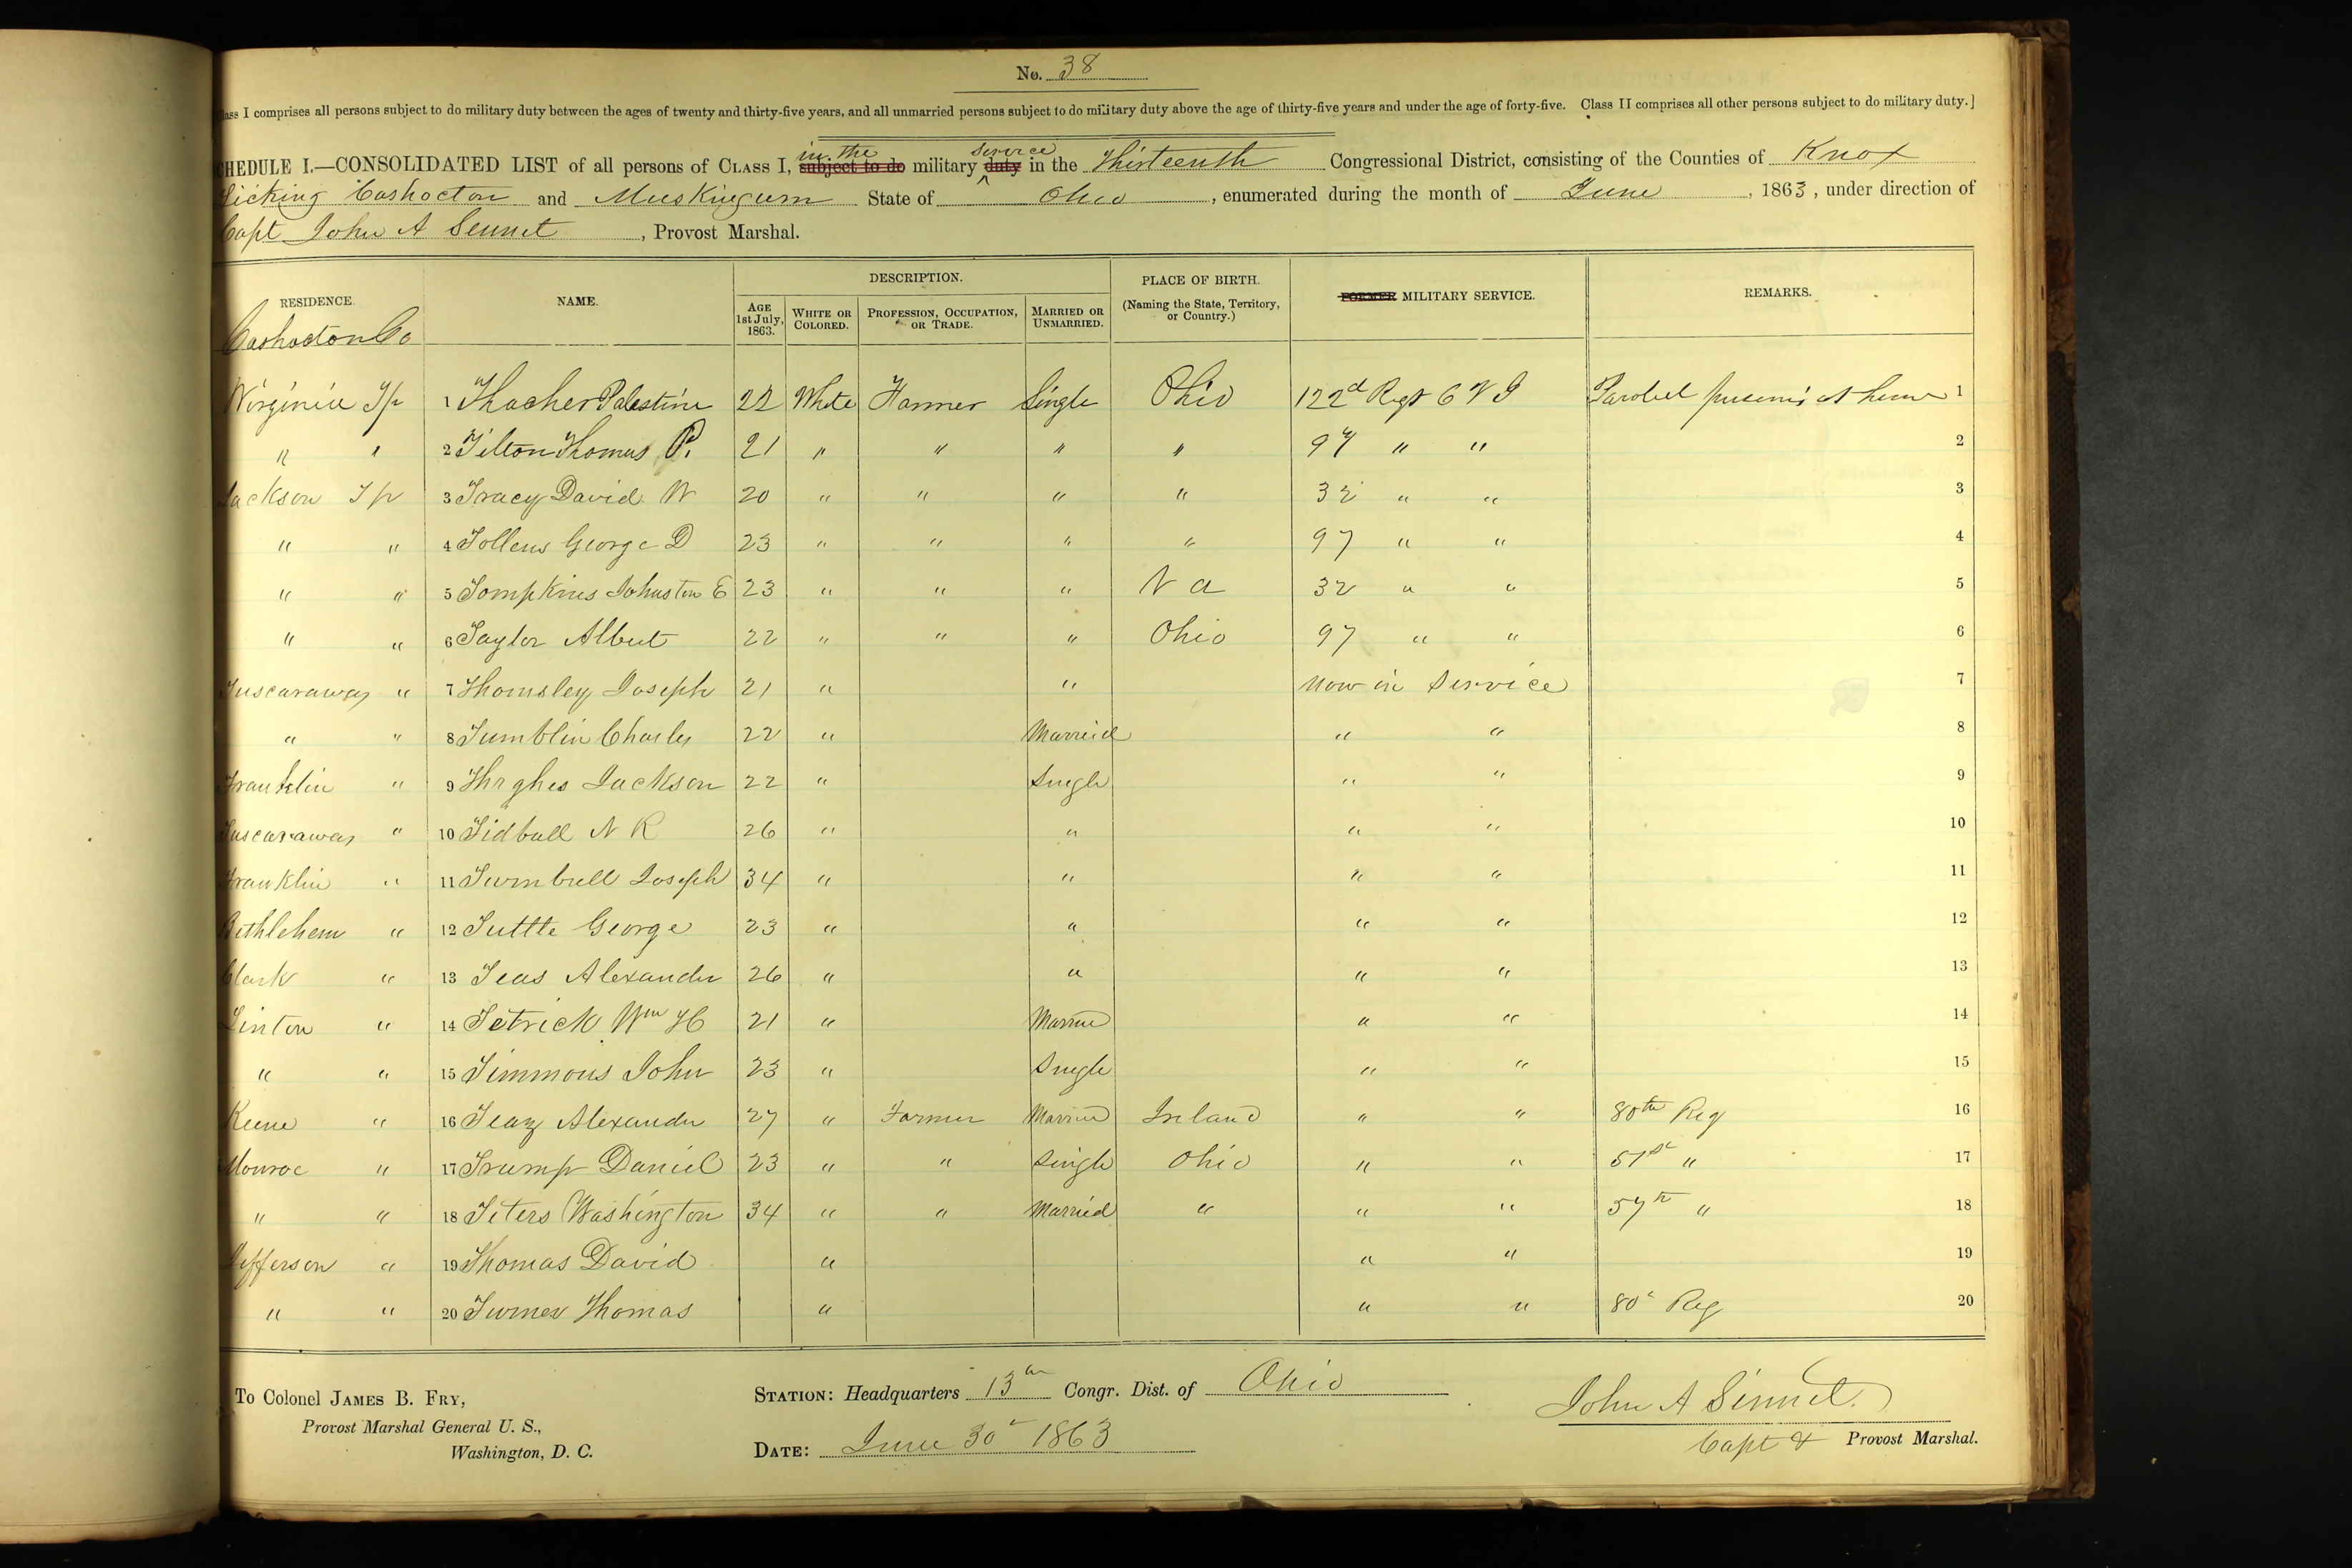 No. 38
lass I comprises all persons subject to do military duty between the ages of twenty and thirty-five years, and all unmarried persons subject to do military duty above the age of thirty-five years and under the age of forty-five. Class II comprises all other persons subject to do military duty.]
in the service
CHEDULE I.—CONSOLIDATED LIST of all persons of CLASS I, subject to do military duty in the Thirteenth Congressional District, consisting of the Counties of Knox
Licking Coshocton and Muskingum State of Ohio, enumerated during the month of June, 1863, under direction of
Capt John A Sennet, Provost Marshal.
RESIDENCE. NAME. DESCRIPTION. PLACE OF BIRTH. (Naming the State, Territory, or Country.) FORMER MILITARY SERVICE. REMARKS.
AGE 1st July, 1863. WHITE OR COLORED. PROFESSION, OCCUPATION, OR TRADE. MARRIED OR UNMARRIED.
Coshocton Co
Virginia Tp 1 Thacher Palestine 22 White Farmer Single Ohio 122d Regt O V I Paroled at home 1
" " 2 Tilton Thomas P. 21 " " " " 97 " " 2
Jackson Tp 3 Tracy David W 20 " " " " 32 " " 3
" " 4 Tollens George D 23 " " " " 97 " " 4
" " 5 Tompkins Johnston E 23 " " " Va 32 " " 5
" " 6 Taylor Albert 22 " " " Ohio 97 " " 6
Tuscarawas " 7 Thomsley Joseph 21 " " Now in Service 7
" " 8 Tumblin Charles 22 " Married " " 8
Franklin " 9 Jackson 22 " Single " " 9
Tuscarawas " 10 Tidball N R 26 " " " " 10
Franklin " 11 Turnbull Joseph 34 " " " " 11
Bethlehem " 12 Tuttle George 23 " " " " 12
Clark " 13 Teas Alexander 26 " " " " 13
Linton " 14 Tetrick Wm H 21 " Married " " 14
" " 15 Timmons John 23 " Single " " 15
Keene " 16 Alexander 27 " Farmer Married Ireland " " 80th Reg 16
Monroe " 17 Trump Daniel 23 " " Single Ohio " " 51st " 17
" " 18 Teters Washington 34 " " Married " " " 57th " 18
Jefferson " 19 Thomas David " " " 19
" " 20 Turner Thomas " " " 80" Reg 20
To Colonel JAMES B. FRY,
Provost Marshal General U. S.,
Washington, D. C.
STATION: Headquarters 13th Congr. Dist. of Ohio
DATE: June 30" 1863
John A Sennet
Capt & Provost Marshal.